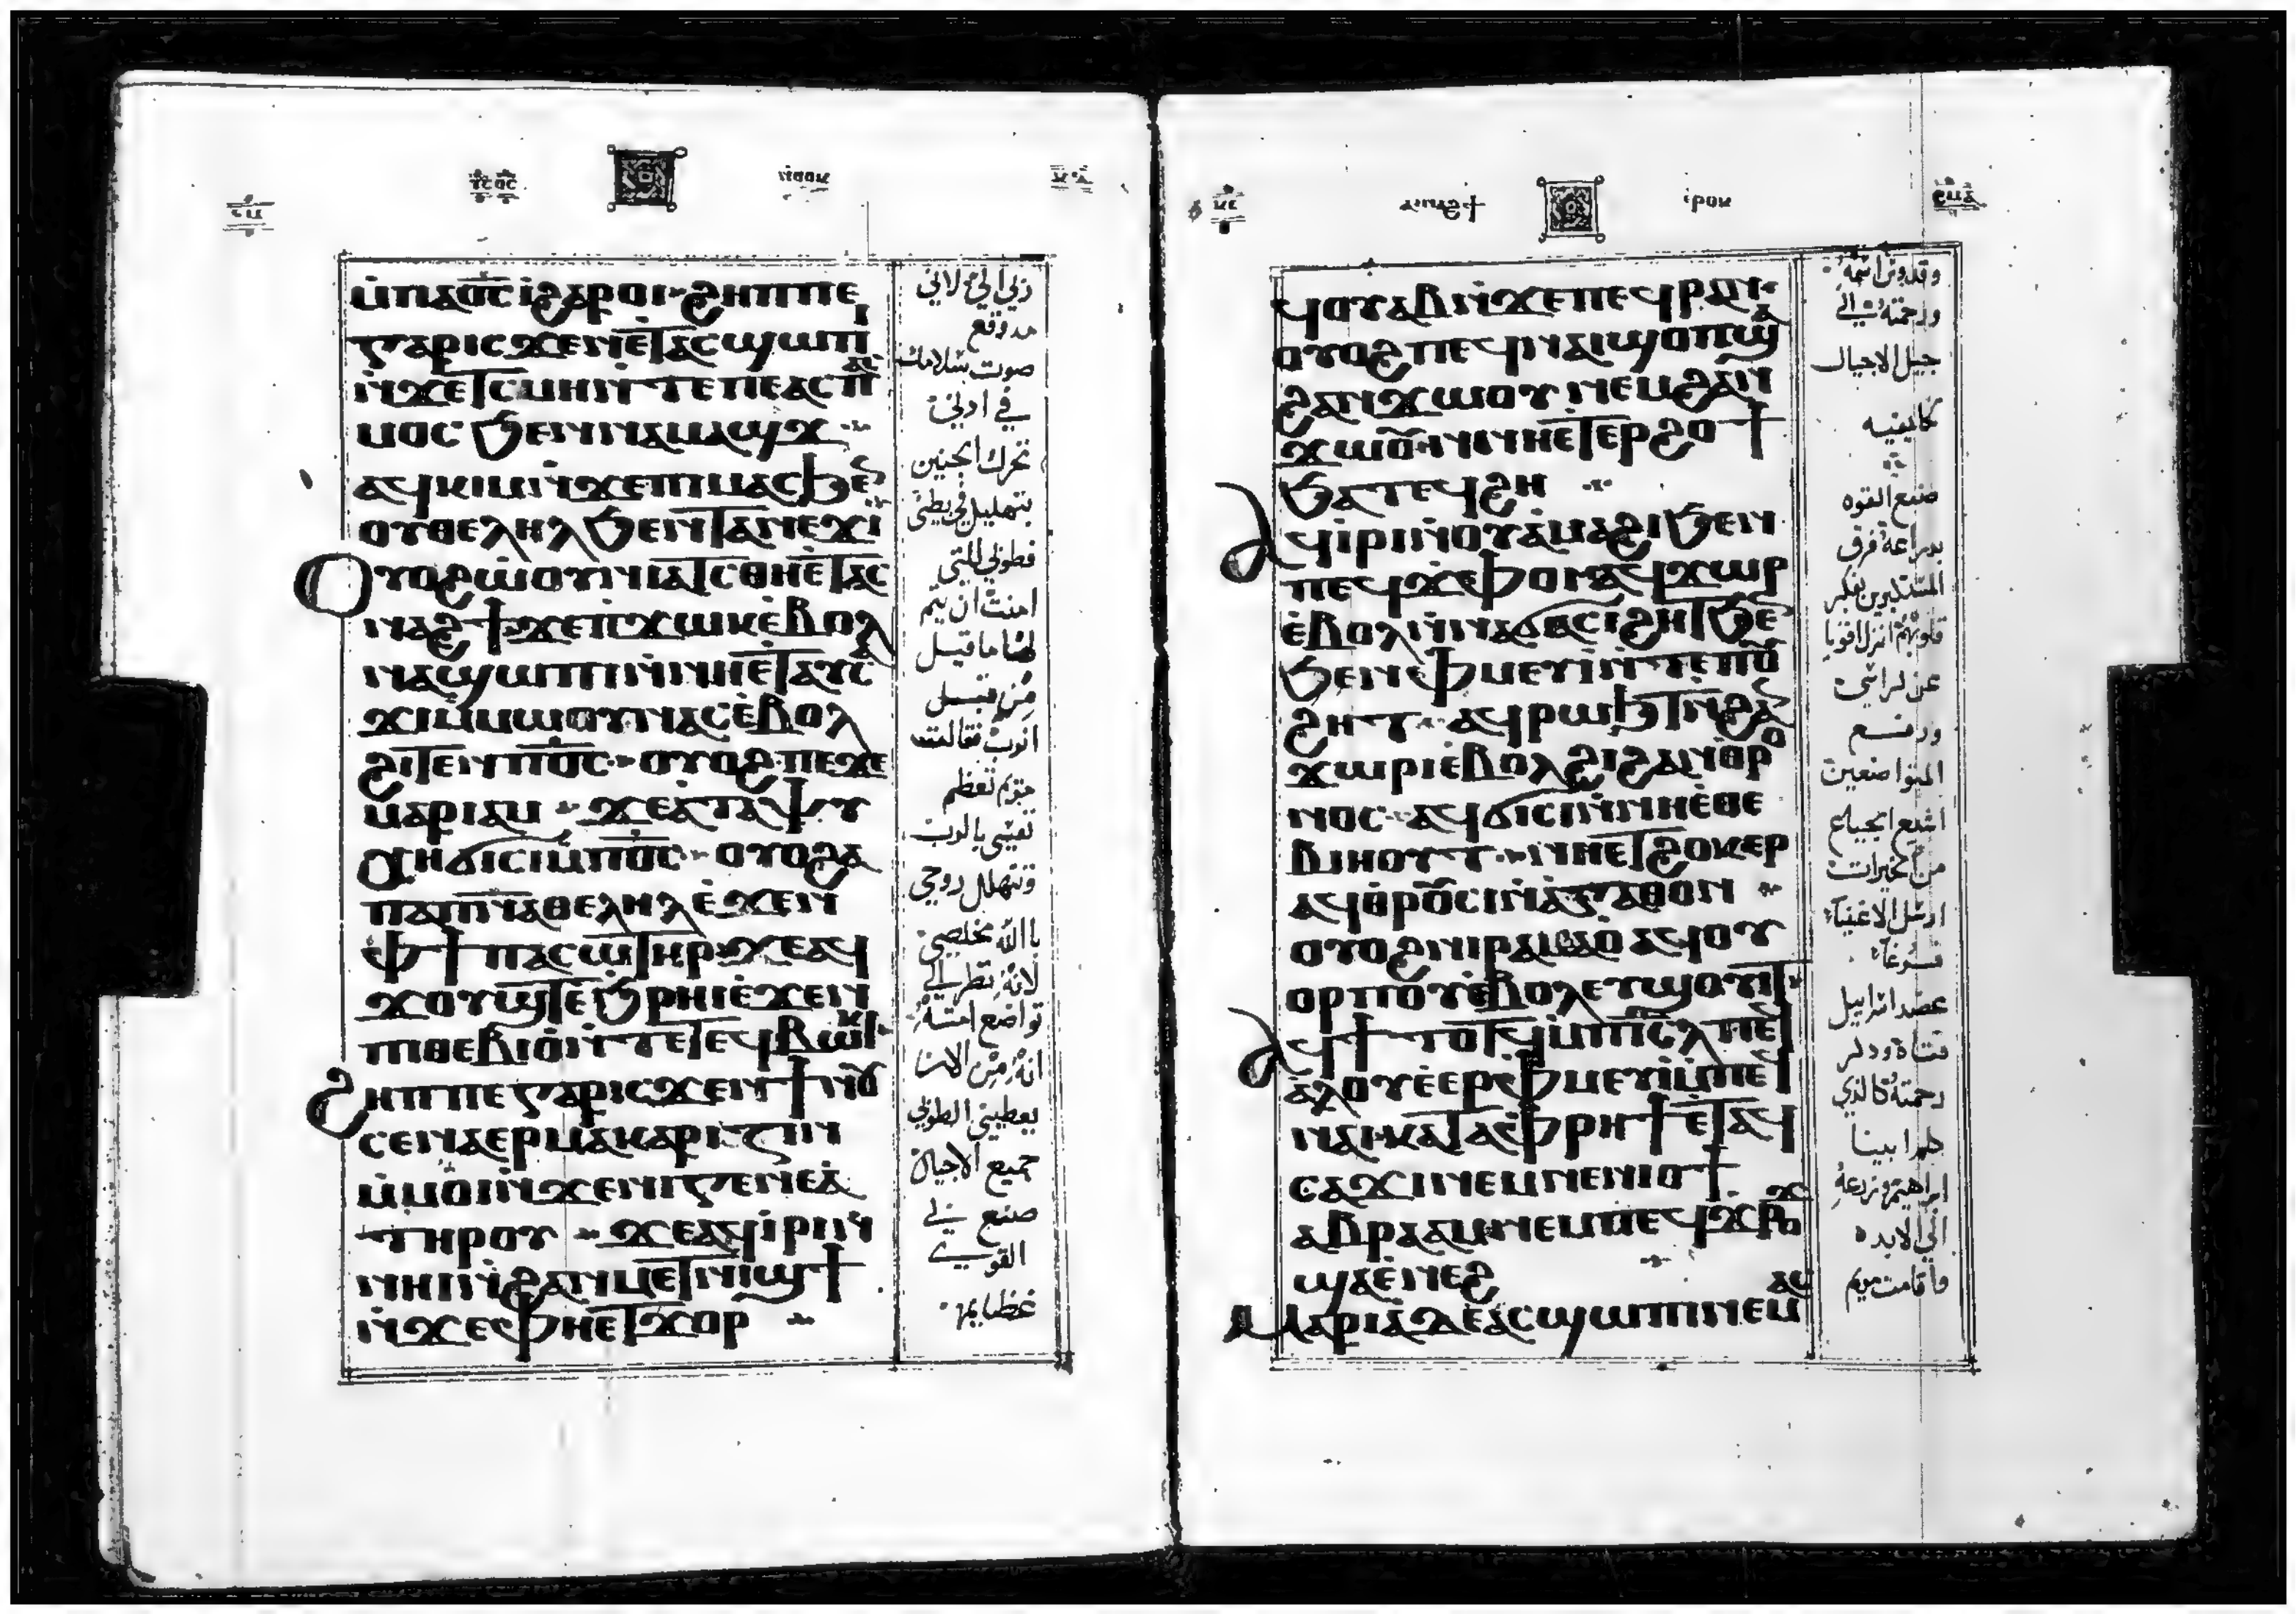 ⲙ̀ⲡⲁⲟ̅ⲥ̅ ⲓ̀ϩⲁⲣⲟⲓ ϩⲏⲡⲡⲉ
ⲅⲁⲣ ⲓⲥϫⲉⲛ ⲉ̀ⲧⲁⲥϣⲱⲡⲓ
ⲛ̀ϫⲉ ⲧⲥⲙⲏ ⲛ̀ⲧⲉ ⲡⲉⲁⲥⲡⲁ
ⲙⲟⲥ ϧⲉⲛ ⲛⲁⲙⲁϣϫ
ⲁϥⲕⲓⲙ ⲛ̀ϫⲉ ⲡⲓⲙⲁⲥ ϧⲉⲛ
ⲟⲩⲑⲉⲗⲏⲗ ϧⲉⲛ ⲧⲁⲛⲉϫⲓ
Ⲟⲩⲟϩ ⲱⲟⲩⲛⲓⲁⲧⲥ ⲑⲏⲉ̀ⲧⲁⲥ
ⲛⲁϩϯ ϫⲉ ⲡϫⲱⲕ ⲉ̀ⲃⲟⲗ
ⲛⲁϣⲱⲡⲓ ⲛ̀ⲛⲏⲉ̀ⲧⲁⲩⲥⲁ
ϫⲓ ⲙ̀ⲙⲱⲟⲩ ⲛⲁⲥ ⲉ̀ⲃⲟⲗ
ϩⲓⲧⲉⲛ ⲡⲟ̅ⲥ̅ ⲟⲩⲟϩ ⲡⲉϫⲉ
ⲙⲁⲣⲓⲁⲙ ϫⲉ ⲁ̀ ⲧⲁⲯⲩ
ⲭⲏ ϭⲓⲥⲓ ⲙ̀ⲡⲟ̅ⲥ̅ ⲟⲩⲟϩ ⲁ̀
ⲡⲁⲡ̅ⲛ̅ⲁ̅ ⲑⲉⲗⲏⲗ ⲉ̀ϫⲉⲛ
ⲫϯ ⲡⲁⲥⲱⲧⲏⲣ ϫⲉ ⲁϥ
ϫⲟⲩϣⲧ ⲉ̀ϧⲣⲏⲓ ⲉ̀ϫⲉⲛ
ⲡⲑⲉⲃⲓⲟ̀ ⲛ̀ⲧⲉ ⲧⲉϥⲃⲱⲕⲓ
ϩⲏⲡⲡⲉ ⲅⲁⲣ ⲓⲥϫⲉⲛ ϯⲛⲟⲩ
ⲥⲉⲛⲁⲉⲣⲙⲁⲕⲁⲣⲓⲍⲓⲛ
ⲙ̀ⲙⲟⲓ ⲛ̀ϫⲉ ⲛⲓⲅⲉⲛⲉⲁ̀
ⲧⲏⲣⲟⲩ ϫⲉ ⲁϥⲓⲣⲓ ⲛ
ⲛⲏⲓ ⲛ̀ϩⲁⲛⲙⲉⲧⲛⲓϣϯ
ⲛ̀ϫⲉ ⲫⲏⲉⲧϫⲟⲣ
لاني
صوت سلامك
في اذني
تحرك الجنين
بتهليل في بطني
فطوبى للتي
امنت ان يتم
لها ما قيل
من قبل
الرب فقالت
مريم تعظم
نفسي بالرب
وتتهلل روحي
بالله مخلصي
لانه نظر الى
تواضع امته
يعطيني الطوبى
جميع الاجيال
صنع بي
القوي
عظايم
ϥⲟⲩⲁⲃ ⲛ̀ϫⲉ ⲡⲉϥⲣⲁⲛ
ⲟⲩⲟϩ ⲡⲉϥⲛⲁⲓ ϣⲟⲡ ϣⲁ
ϩⲁⲛϫⲱⲟⲩ ⲛⲉⲙ ϩⲁⲛ
ϫⲱⲟⲩ ⲛ̀ⲛⲏⲉⲧⲉⲣϩⲟϯ
ϧⲁⲧⲉϥϩⲏ
Ⲁϥⲓⲣⲓ ⲛ̀ⲟⲩⲁ̀ⲙⲁϩⲓ ϧⲉⲛ
ⲡⲉϥϫⲫⲟⲓ ⲁϥϫⲱⲣ
ⲉ̀ⲃⲟⲗ ⲛ̀ⲛⲁϭⲁⲥⲓϩⲏⲧ ϧⲉ
ϧⲉⲛ ⲫⲙⲉⲩⲓ ⲛ̀ⲧⲉ ⲡⲟⲩ
ϩⲏⲧ ⲁϥⲣⲱϧⲧ ⲛ̀ϩⲁⲛ
ϫⲱⲣⲓ ⲉ̀ⲃⲟⲗ ϩⲓ ϩⲁⲛⲑⲣⲟ
ⲛⲟⲥ ⲁϥϭⲓⲥⲓ ⲛ̀ⲛⲏⲉ̀ⲑ
ⲃⲓⲏⲟⲩⲧ ⲛⲏⲉⲧϩⲟⲕⲉⲣ
ⲁϥⲑⲣⲟⲩⲥⲓ ⲛ̀ⲁ̀ⲅⲁⲑⲟⲛ
ⲟⲩⲟϩ ⲛⲓⲣⲁⲙⲁⲟ̀ ⲁϥⲟⲩ
ⲟⲣⲡⲟⲩ ⲉ̀ⲃⲟⲗ ⲉⲩϣⲟⲩⲓⲧ
Ⲁϥϯⲧⲟⲧϥ ⲙ̀ⲡⲓⲥ̅ⲗ̅ ⲡⲉϥ
ⲁ̀ⲗⲟⲩ ⲉ̀ⲉⲣⲫⲙⲉⲩⲓ ⲙ̀ⲡⲉϥ
ⲛⲁⲓ ⲕⲁⲧⲁ ⲫⲣⲏϯ ⲉⲧⲁϥ
ⲥⲁϫⲓ ⲛⲉⲙ ⲛⲉⲛⲓⲟϯ
ⲁⲃⲣⲁⲁⲙ ⲛⲉⲙ ⲡⲉϥϫⲣⲟϫ
ϣⲁ ⲉ̀ⲛⲉϩ
Ⲙⲁⲣⲓⲁ̀ ⲇⲉ ⲁⲥϣⲱⲡⲓ ⲛⲉⲙⲁⲥ
وقدوس اسمه
ورحمته الى
جيل الاجيال
صنع القوه
المستكبرين بفكر
قلوبهم انزل اقويا
عن كراسي
ورفع
المتواضعين
اشبع الجياع
من الخيرات
ارسل الاغنيا
عضد اسراييل
فتاه وذكر
رحمته كالذي
ابراهيم وزرعه
الى الابد
فاقامت مريم